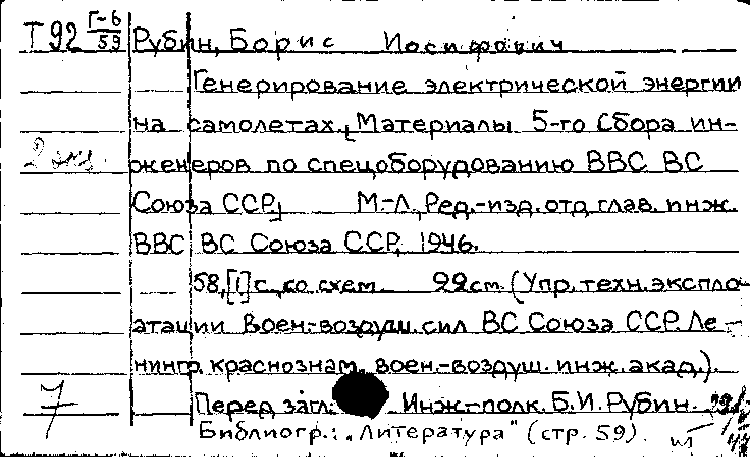 Т92 Г-6/59 Рубин, Борис Иосифович
Генерирование электрической энергии
на самолетах. [Материалы 5-го Сбора ин-
2 экз. женеров по спецоборудованию ВВС ВС
Союза ССР] М-Л, Ред.-изд. отд. глав. инж.
ВВС ВС Союза ССР, 1946.
58, [1] с. со схем. 22см. (Упр. техн. экспло-
атации воен.-воздуш. сил ВС Союза ССР. Ле-
нингр. краснознам. воен.-воздуш. инж. акад.).
7 Перед загл.: Инж-полк. Б.И. Рубин.
Библиогр.: "Литература" (стр. 59).